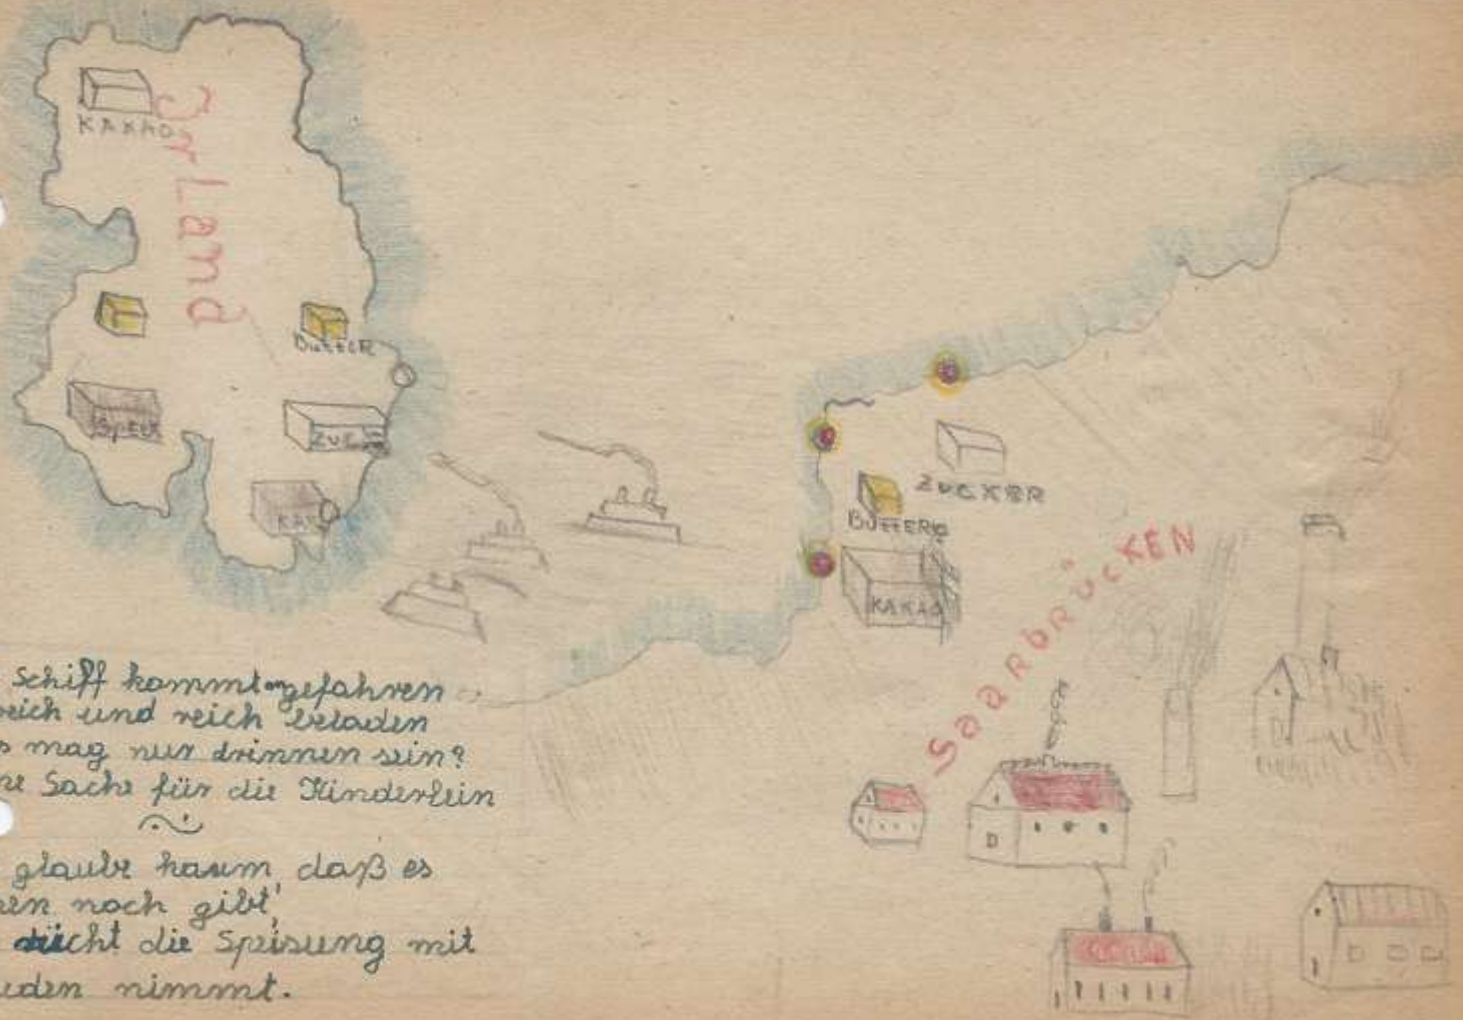 KAKAO
IrLand
ButteR
SpecK
ZUC
KAK
ZUCKER
BUttER
KAKAO
SaaRbRüCKEN
Schiff kommt angefahren
reich und reich beladen
mag nur drinnen sein?
Sache für die Kinderlein
glaube kaum, daß es
noch gibt,
nicht die Speisung mit
nimmt.